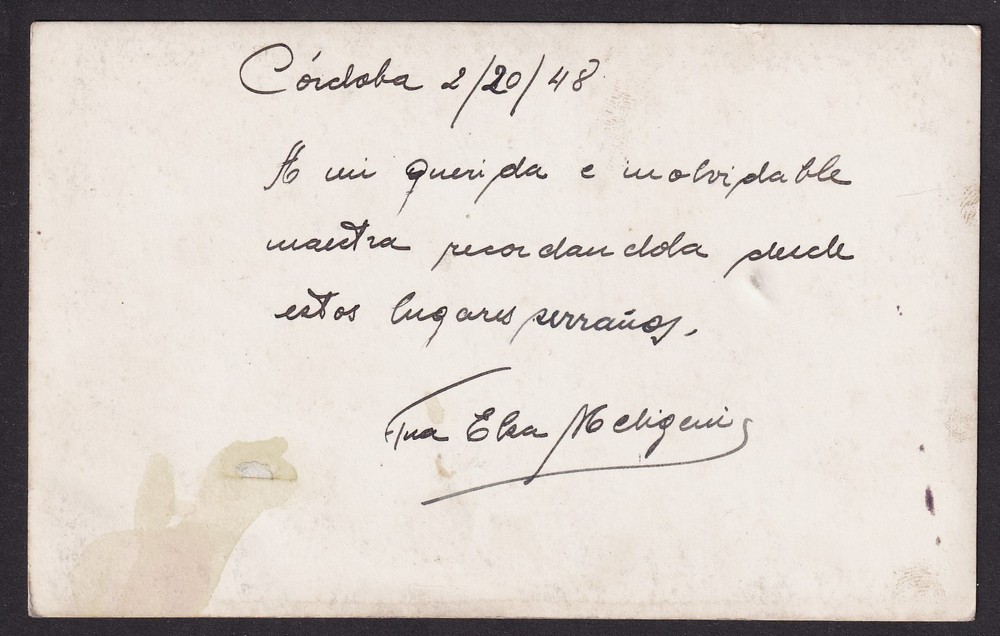 Córdoba 2/20/48
A mi querida e inolvidable
maestra recordandola desde
estos lugares serraños.
Elsa Meligeni